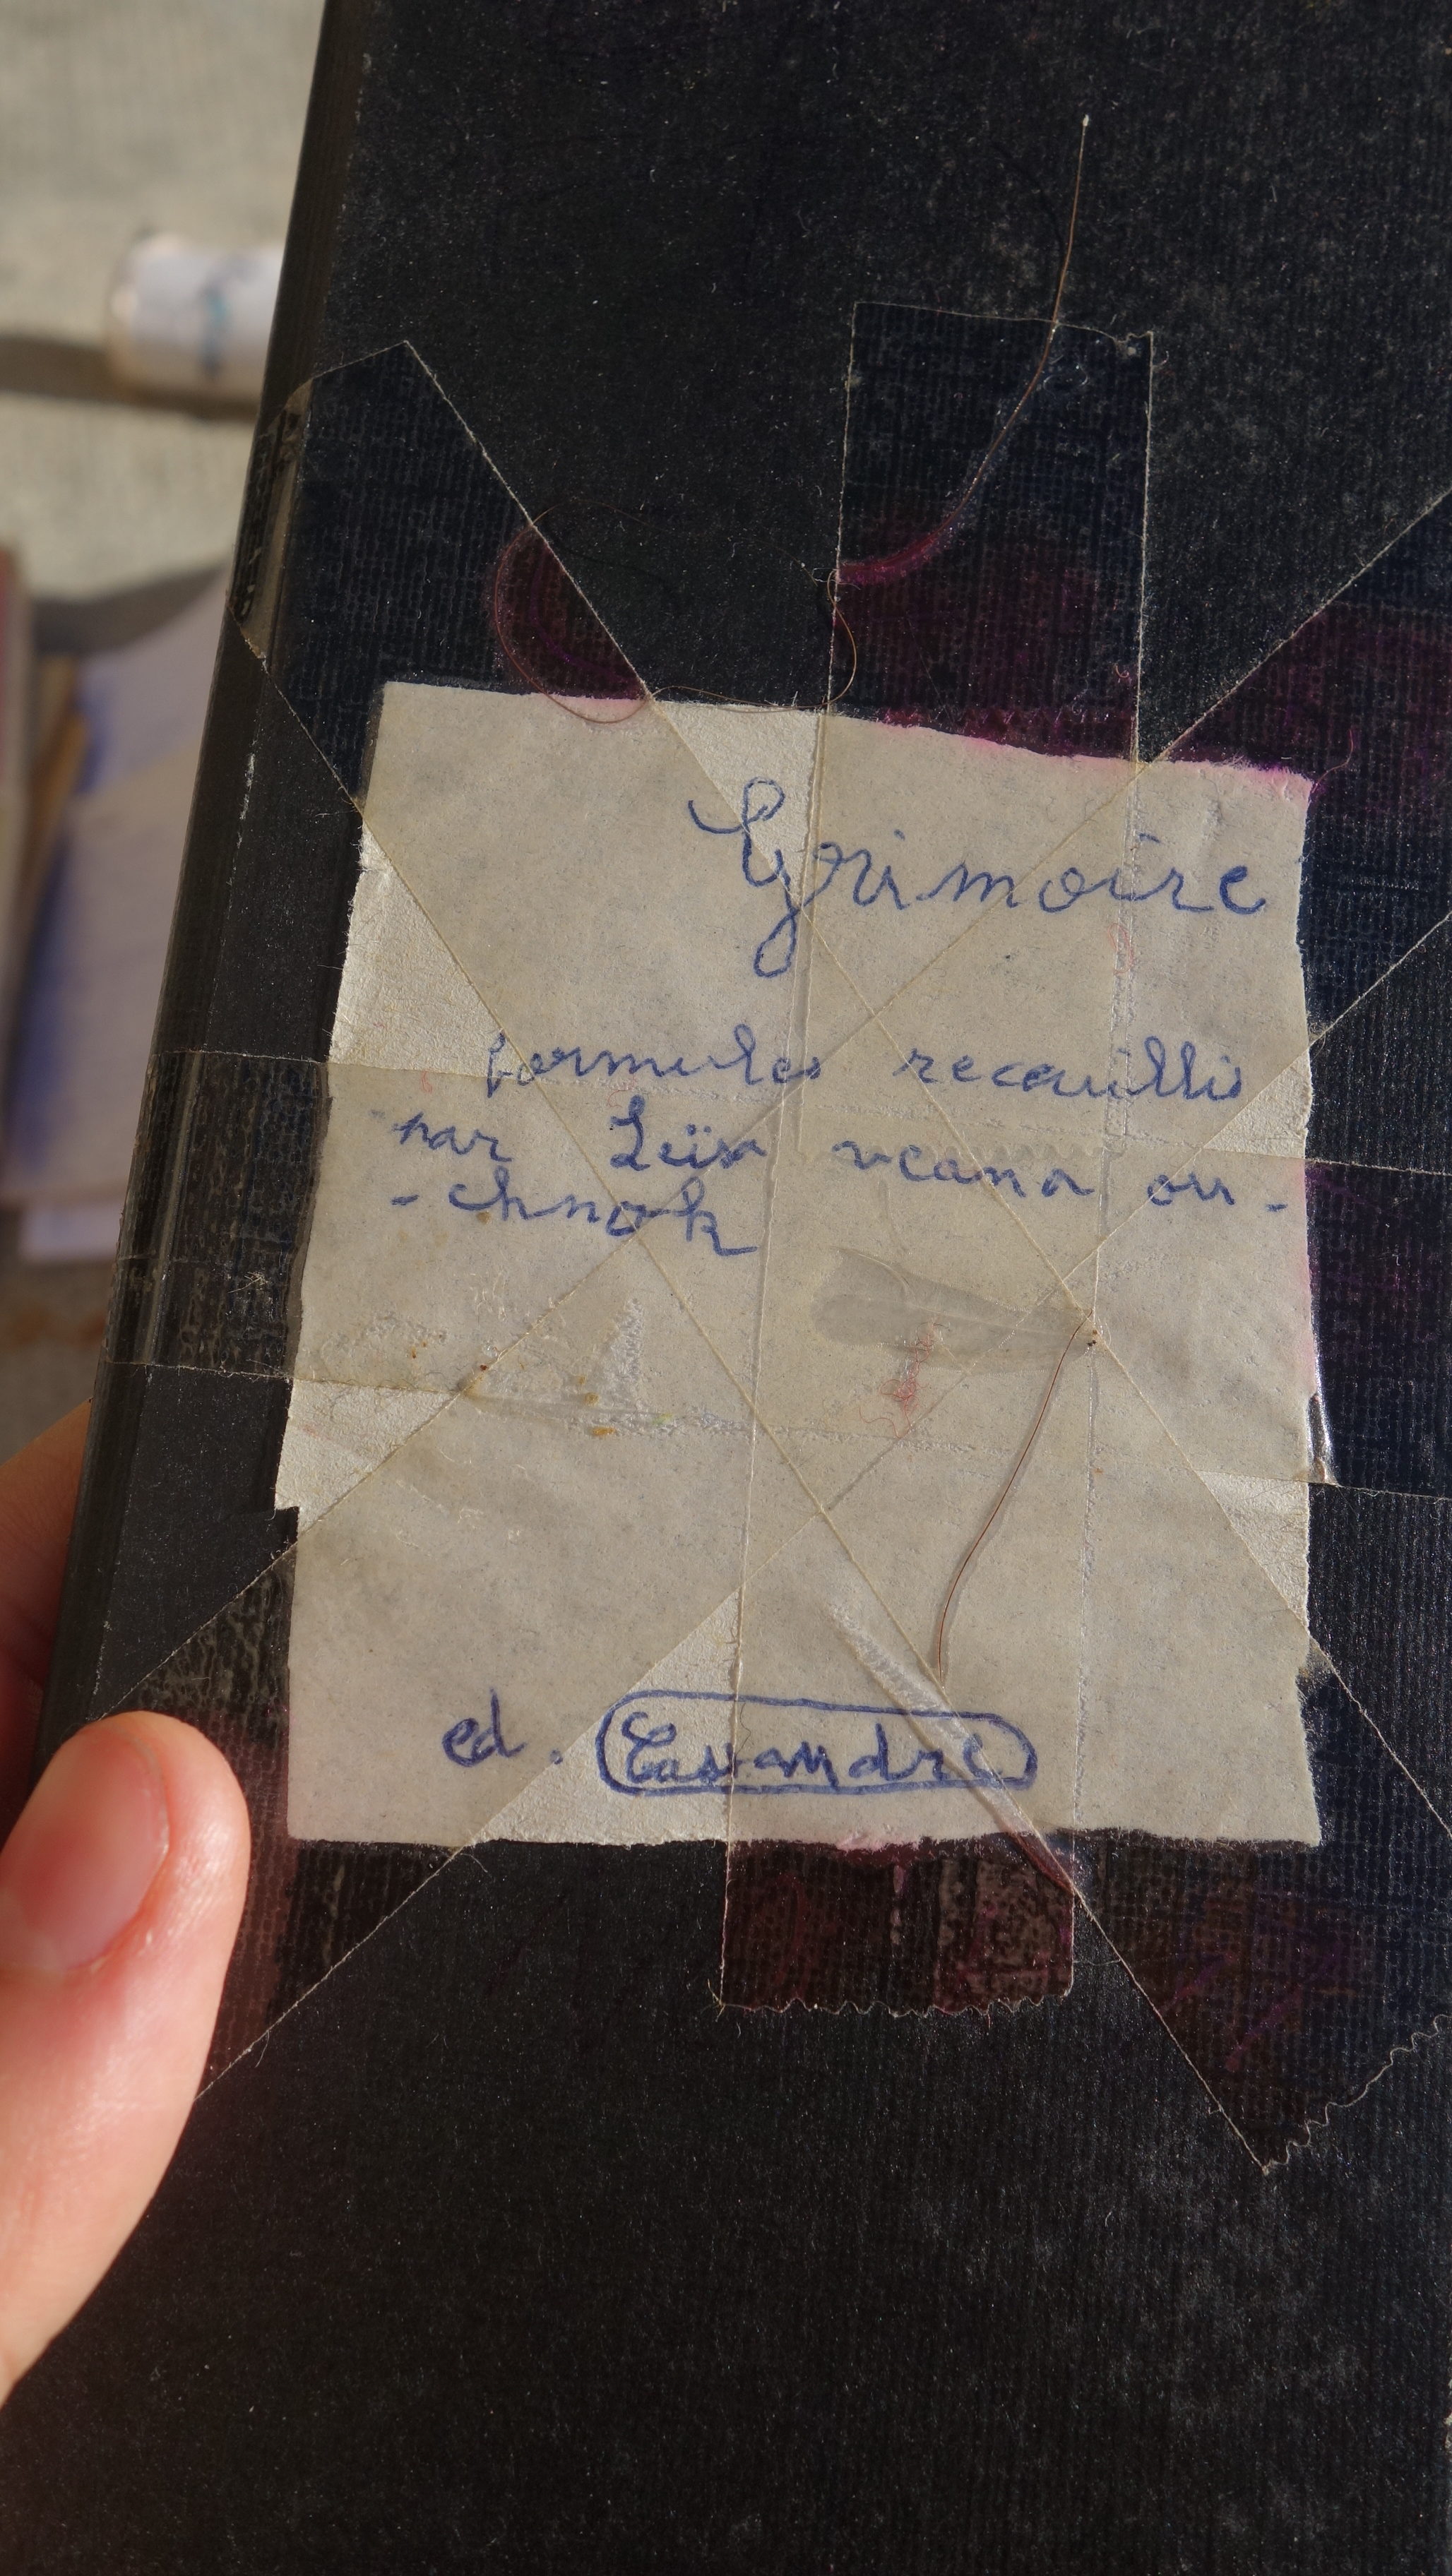 Grimoire
formules recueillis
par Leïsa vcana ou-
-chnok
ed. Cassandre